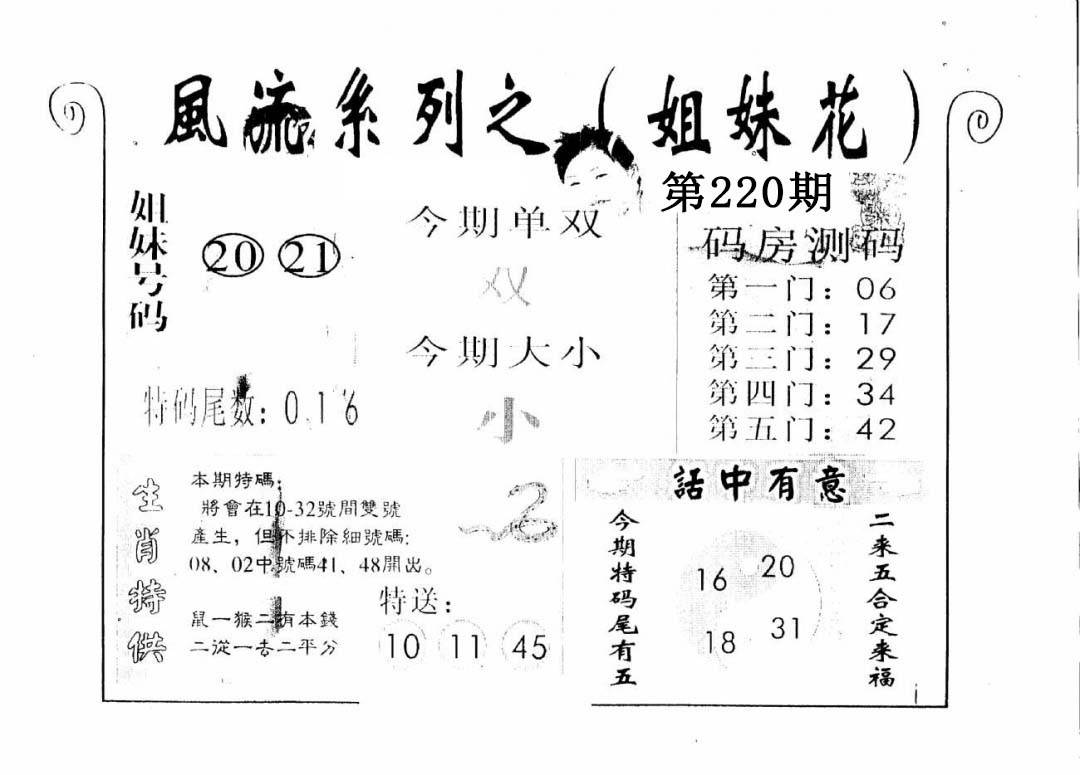 風流系列之（姐妹花）
第220期
姐妹号码
20 21
今期单双
双
今期大小
小
特码尾数：0.1 6
码房测码
第一门：06
第二门：17
第三门：29
第四门：34
第五门：42
生肖特供
本期特碼：
將會在10-32號間雙號
產生，但不排除細號碼：
08、02中號碼41、48開出。
鼠一猴二有本錢
二從一去二平分
2
特送：
10 11 45
話中有意
今期特码尾有五
16 20
18 31
二来五合定来福